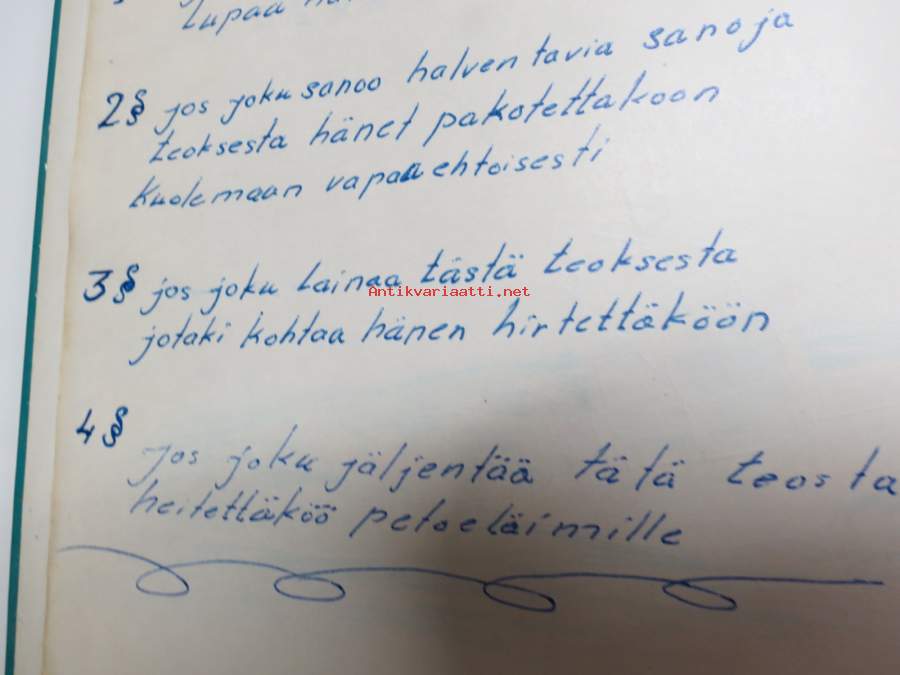 Lupaa
2§ jos joku sanoo halventavia sanoja
teoksesta hänet pakotettakoon
Kuolemaan vapaaehtoisesti
3§ jos joku lainaa tästä teoksesta
Antikvariaatti.net
jotaki kohtaa hänen hirtettäköön
4§
jos joku jäljentää tätä teosta
heitettäköö petoeläimille